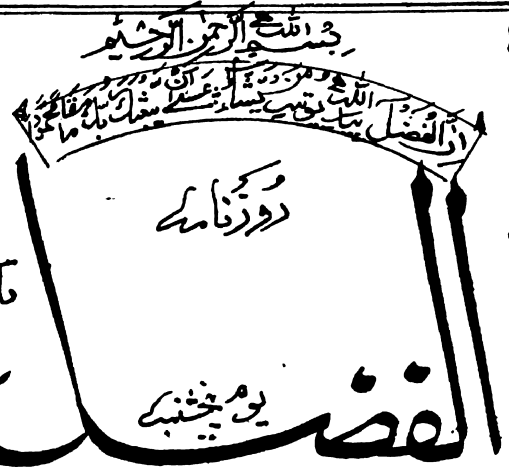 بسم الله الرحمن الرحیم
ان الفضل بید الله یوتیه من یشاء عسے ان یبعثک ربک مقاما محمودا
روزنامہ
الفضل
یوم پنجشنبہ